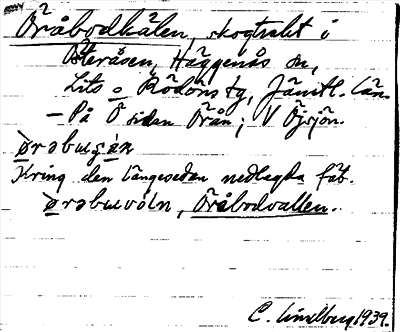 Öråbodkälen, skogtrakt i
Österåsen, Häggenås sn,
Lits o Rödöns tg, Jämtl. län
– På Ö sidan Örån; V Öjsjön.
Kring den längesedan nedlagda fäb.
Öråbodvallen.
C. Lindberg 1939.